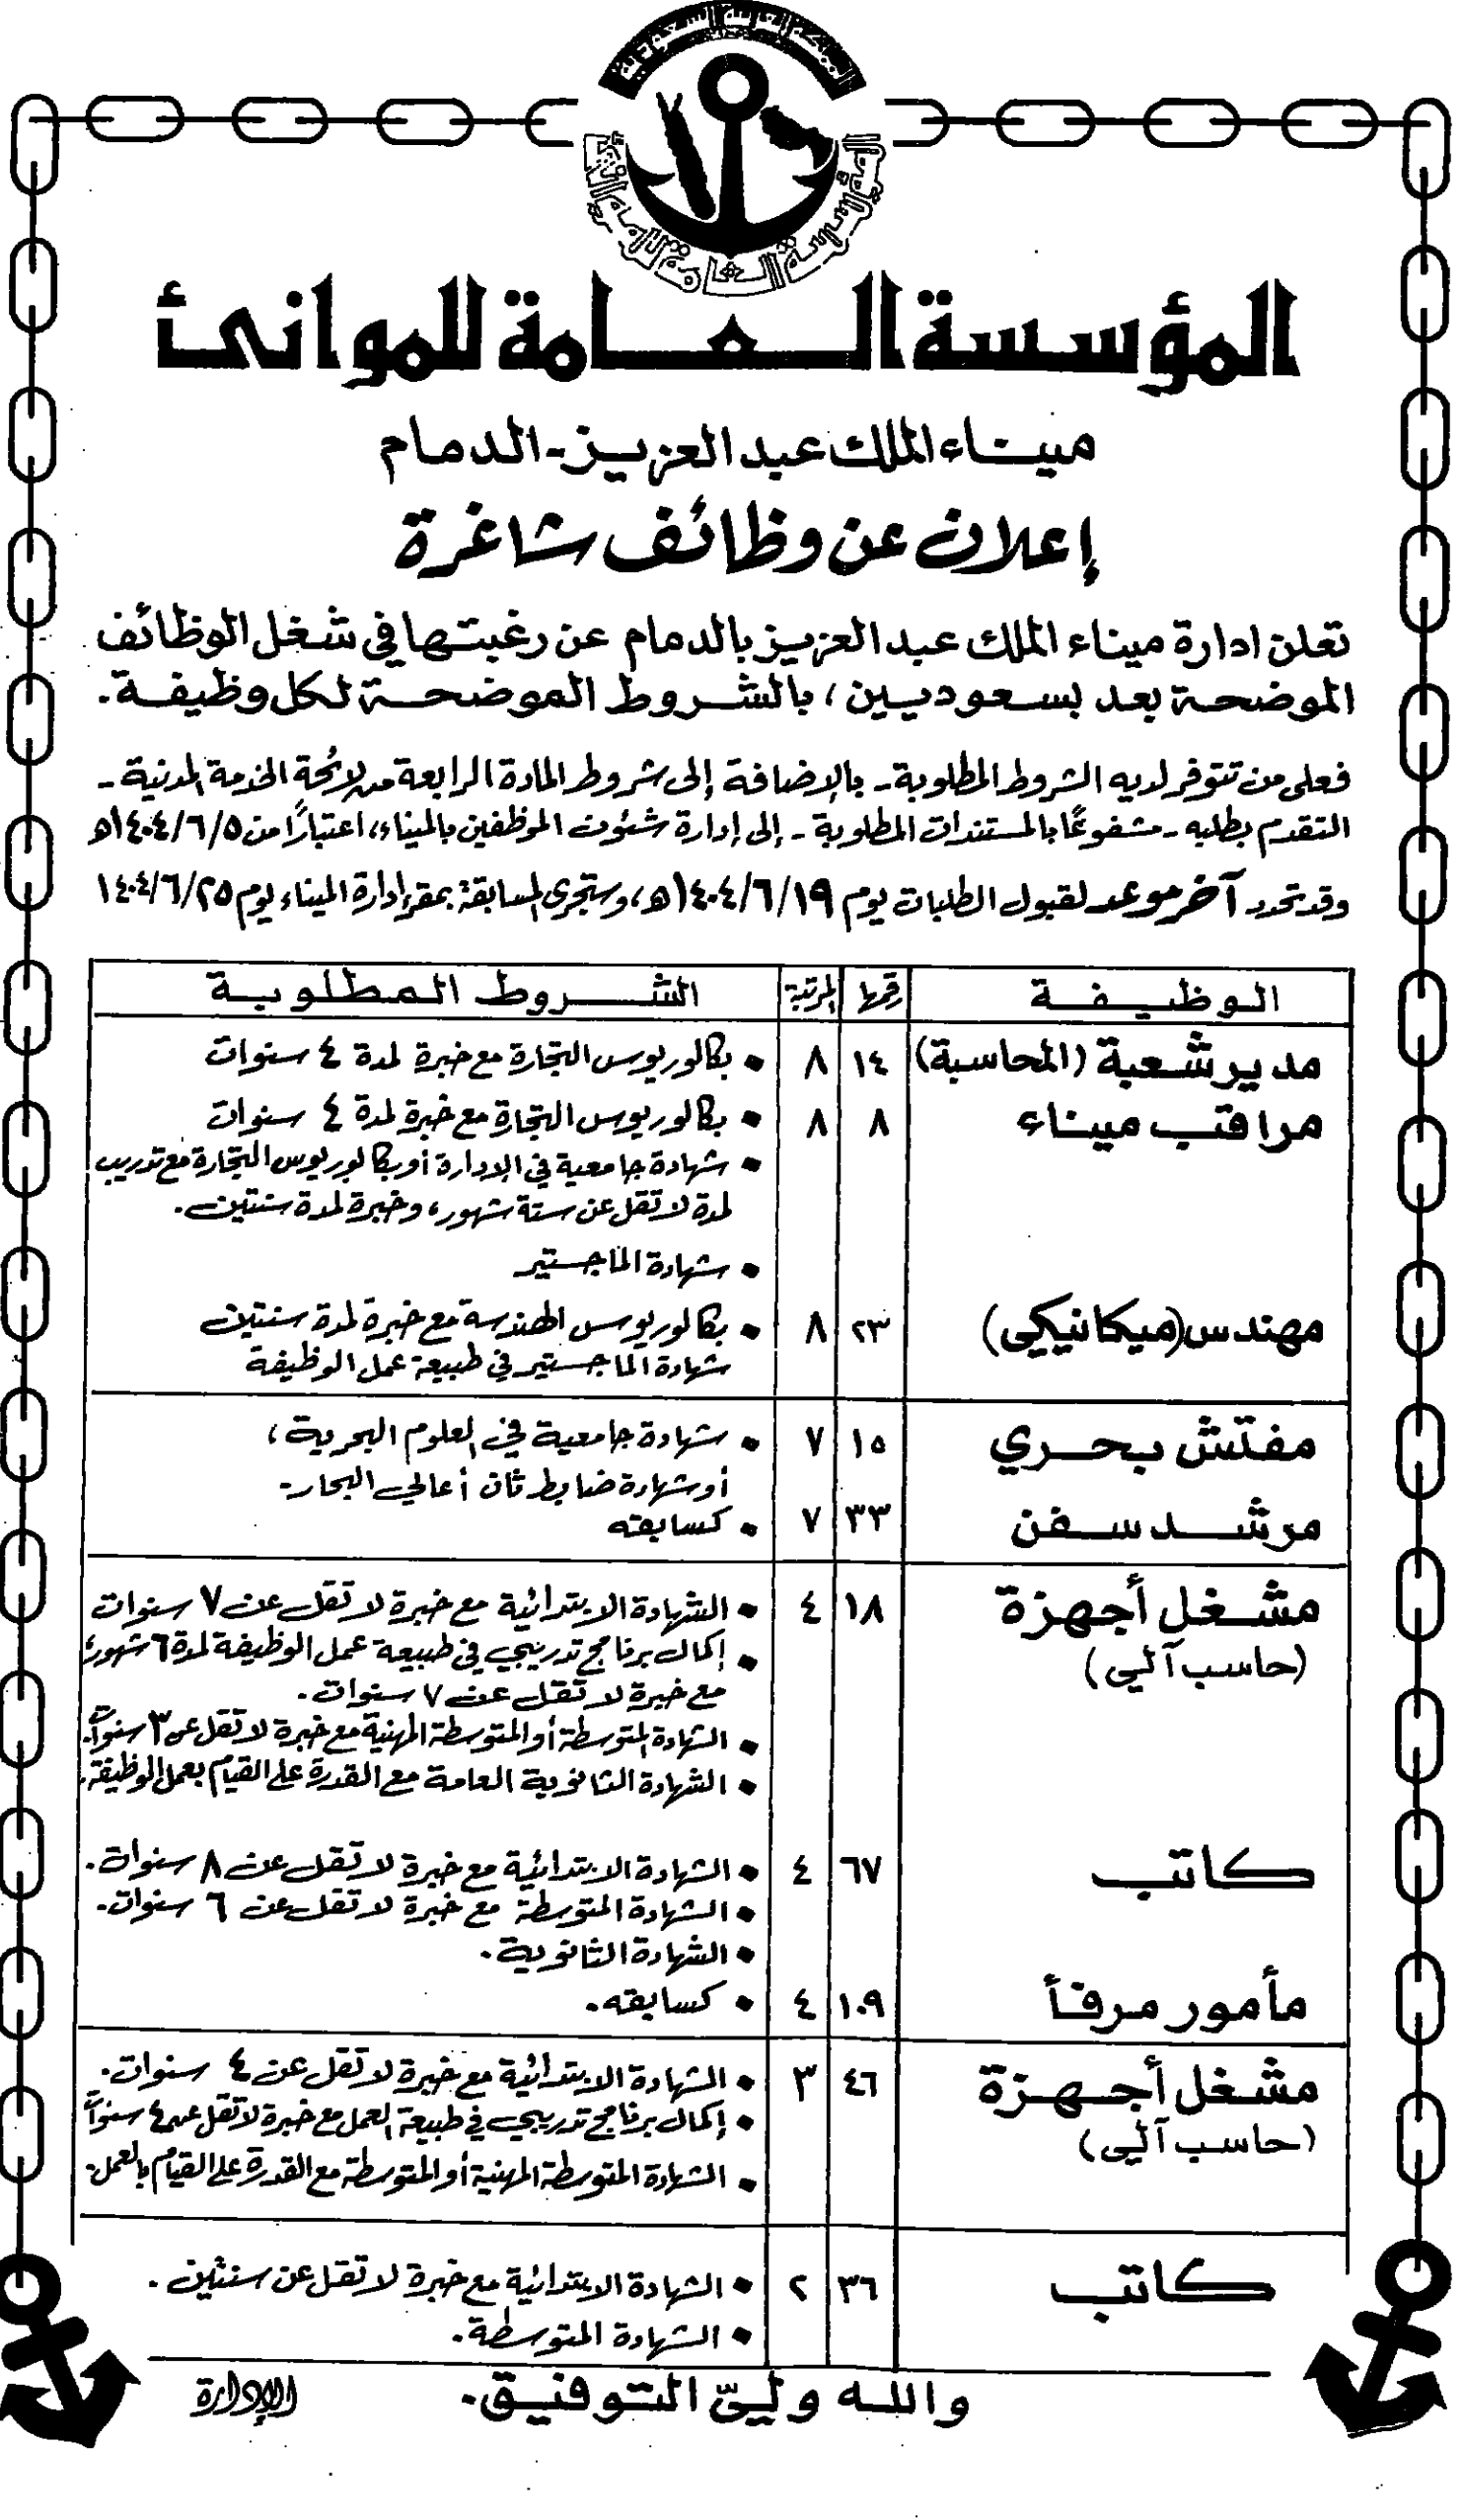 المؤسسة العامة للموانئ
ميناء الملك عبد العزيز - الدمام
إعلان عن وظائف شاغرة
تعلن ادارة ميناء الملك عبد العزيز بالدمام عن رغبتها في شغل الوظائف
الموضحة بعد بسعوديين ، بالشروط الموضحة لكل وظيفة .
فعلى من تتوفر لديه الشروط المطلوبة - بالإضافة إلى شروط المادة الرابعة من لائحة الخدمة المدنية -
التقدم بطلبه - مشفوعًا بالمستندات المطلوبة - إلى إدارة شئون الموظفين بالميناء، اعتبارًا من ١٤٠٤/٦/٥هـ
وقد تحدد آخر موعد لقبول الطلبات يوم ١٤٠٤/٦/١٩هـ، وستجرى المسابقة بمقر إدارة الميناء يوم ١٤٠٤/٦/٢٥
الوظيفة رقمها المرتبة الشروط المطلوبة
مدير شعبة (المحاسبة) ١٤ ٨ • بكالوريوس التجارة مع خبرة لمدة ٤ سنوات
مراقب ميناء ٨ ٨ • بكالوريوس التجارة مع خبرة لمدة ٤ سنوات
• شهادة جامعية في الإدارة أو بكالوريوس التجارة مع تدريب
لمدة لا تقل عن ستة شهور، وخبرة لمدة سنتين .
• شهادة الماجستير
مهندس (ميكانيكي) ٢٣ ٨ • بكالوريوس الهندسة مع خبرة لمدة سنتين
شهادة الماجستير في طبيعة عمل الوظيفة
مفتش بحري ١٥ ٧ • شهادة جامعية في العلوم البحرية ،
أو شهادة ضابط ثان أعالي البحار -
مرشد سفن ٣٣ ٧ • كسابقه
مشغل أجهزة ١٨ ٤ • الشهادة الابتدائية مع خبرة لا تقل عن ٧ سنوات
(حاسب آلي) • إكمال برنامج تدريبي في طبيعة عمل الوظيفة لمدة ٦ شهور
مع خبرة لا تقل عن ٧ سنوات .
• الشهادة المتوسطة أو المتوسطة المهنية مع خبرة لا تقل عن ٣ سنوات .
• الشهادة الثانوية العامة مع القدرة على القيام بعمل الوظيفة .
كاتب ٦٧ ٤ • الشهادة الابتدائية مع خبرة لا تقل عن ٨ سنوات .
• الشهادة المتوسطة مع خبرة لا تقل عن ٦ سنوات .
• الشهادة الثانوية .
مأمور مرفأ ١٠٩ ٤ • كسابقه .
مشغل أجهزة ٤٦ ٣ • الشهادة الابتدائية مع خبرة لا تقل عن ٤ سنوات .
(حاسب آلي) • إكمال برنامج تدريبي في طبيعة العمل مع خبرة لا تقل عن ٤ سنوات
• الشهادة المتوسطة المهنية أو المتوسطة مع القدرة على القيام بالعمل .
كاتب ٣٦ ٢ • الشهادة الابتدائية مع خبرة لا تقل عن سنتين .
• الشهادة المتوسطة .
والله وليّ التوفيق .
الإدارة